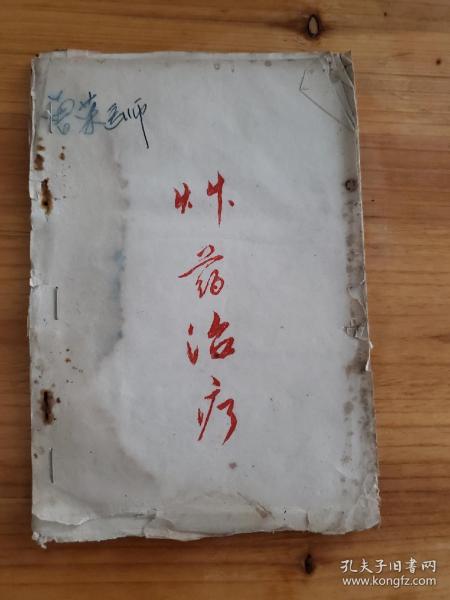 艸药治疗
孔夫子旧书网
www.kongfz.com